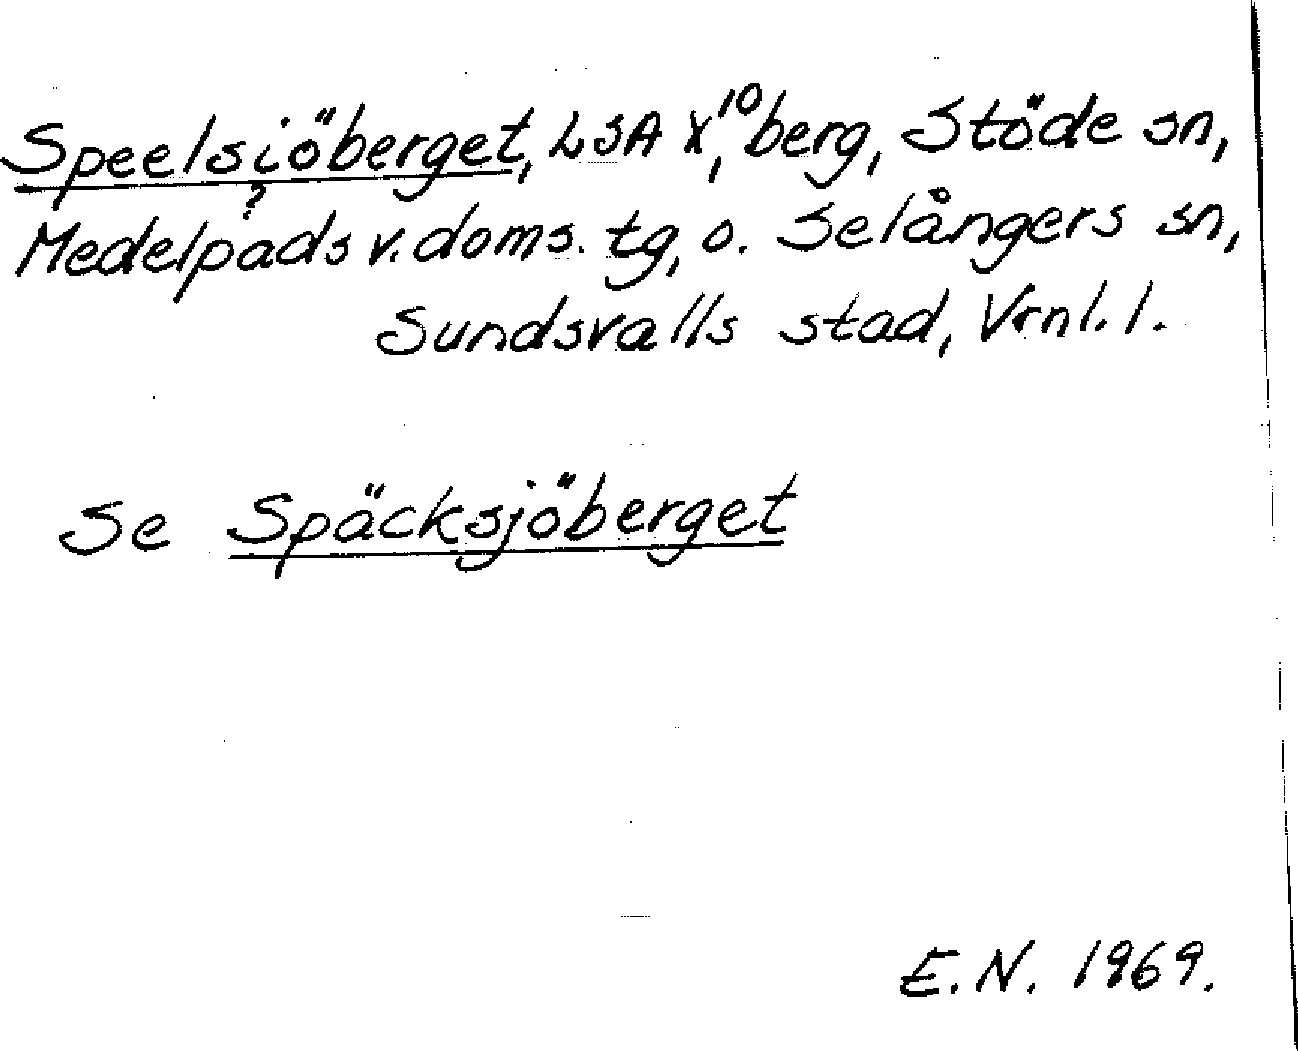 Speelsjöberget, LSA X¹⁰, berg, Stöde sn,
?
Medelpads v. doms. tg, o. Selångers sn,
Sundsvalls stad, Vrnl. l.
Se Späcksjöberget
E.N. 1969.